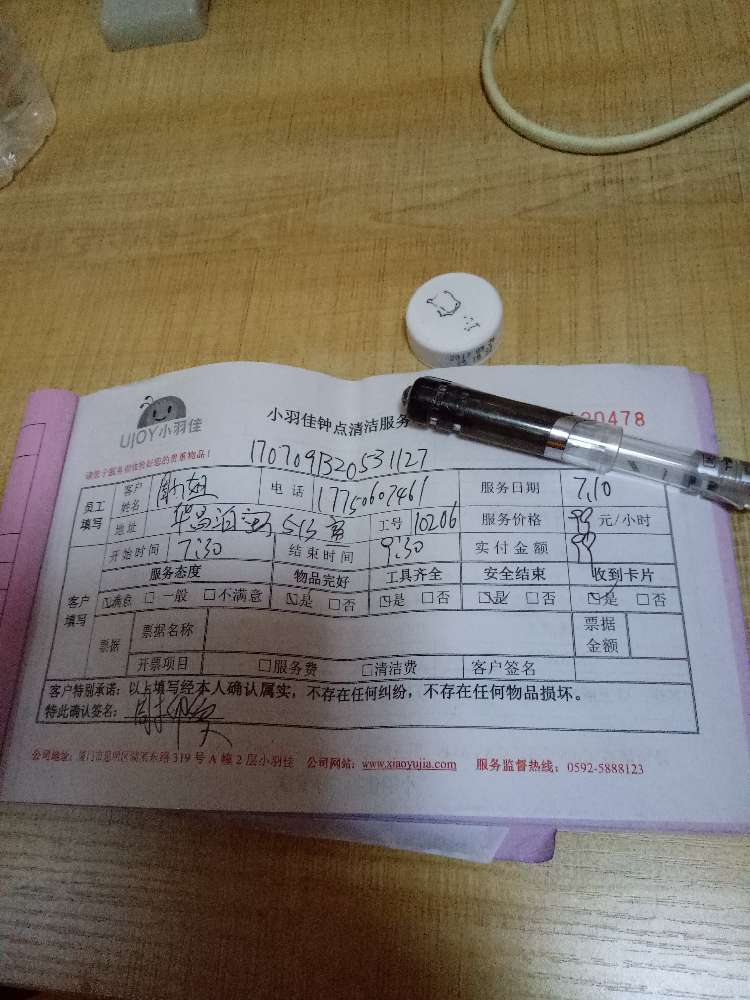 UJOY小羽佳
小羽佳钟点清洁服务
20478
请您于服务前保管好您的贵重物品!
170709132053 1127
员工填写 客户姓名 电话 17750607461 服务日期 7.10
地址 515室 工号 10206 服务价格 99 元/小时
开始时间 7:30 结束时间 9:30 实付金额 99
客户填写 服务态度 物品完好 工具齐全 安全结束 收到卡片
满意 一般 不满意 是 否 是 否 是 否 是 否
票据 票据名称 票据金额
开票项目 服务费 清洁费 客户签名
客户特别承诺:以上填写经本人确认属实,不存在任何纠纷,不存在任何物品损坏。
特此确认签名:
公司地址:厦门市思明区 东路 319 号 A 幢 2 层小羽佳 公司网站:www.xiaoyujia.com 服务监督热线:0592-5888123